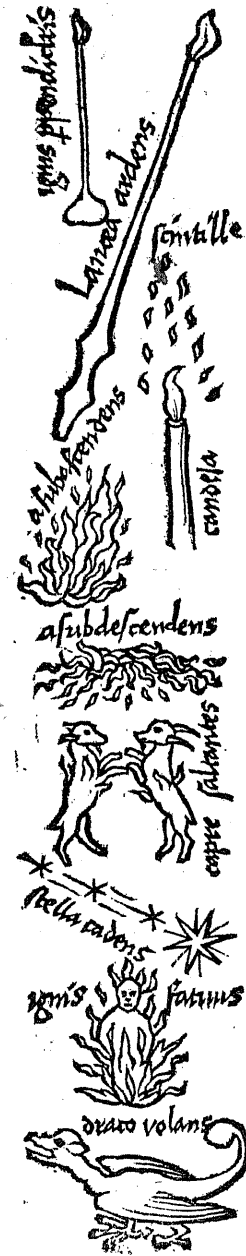 Lancea ardens
scintille
candela
asub ascendens
asub descendens
capre saltantes
stella cadens
ignis fatuus
draco volans